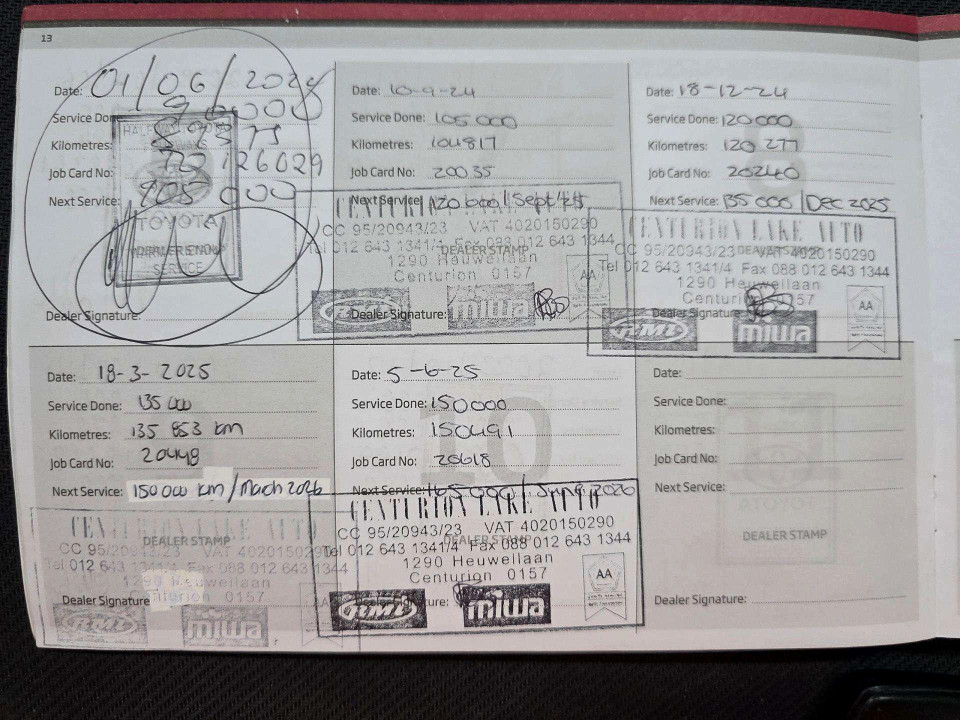 13
Date: 01/06/2024
Service Done: 90000
Kilometres: 89875
Job Card No: 126029
Next Service: 105 000
TOYOTA
DEALER STAMP
SERVICE
Dealer Signature:
Date: 10-9-24
Service Done: 105 000
Kilometres: 104817
Job Card No: 20035
Next Service: 120 000 / Sept/25
CENTURION LAKE AUTO
CC 95/20943/23 VAT 4020150290
Tel 012 643 1341/4 Fax 088 012 643 1344
DEALER STAMP
1290 Heuwellaan
Centurion 0157
AA
Dealer Signature:
RMI
miwa
Date: 18-12-24
Service Done: 120 000
Kilometres: 120 277
Job Card No: 20240
Next Service: 135 000 / Dec 2025
CENTURION LAKE AUTO
CC 95/20943/23 VAT 4020150290
DEALER STAMP
Tel 012 643 1341/4 Fax 088 012 643 1344
1290 Heuwellaan
Centurion 0157
AA
Dealer Signature
RMI
miwa
Date: 18-3-2025
Service Done: 135 000
Kilometres: 135 853 km
Job Card No: 20448
Next Service: 150 000 km / March 2026
CENTURION LAKE AUTO
DEALER STAMP
CC 95/20943/23 VAT 4020150290
Tel 012 643 1341/4 Fax 088 012 643
1290 Heuwellaan
Centurion 0157
Dealer Signature
RMI
miwa
10
Date: 5-6-25
Service Done: 150000
Kilometres: 150491
Job Card No: 20618
Next Service: 165 000 / June 2026
CENTURION LAKE AUTO
CC 95/20943/23 VAT 4020150290
DEALER STAMP
Tel 012 643 1341/4 Fax 088 012 643 1344
1290 Heuwellaan
Centurion 0157
AA
RMI
miwa
Date:
Service Done:
Kilometres:
Job Card No:
Next Service:
DEALER STAMP
Dealer Signature: